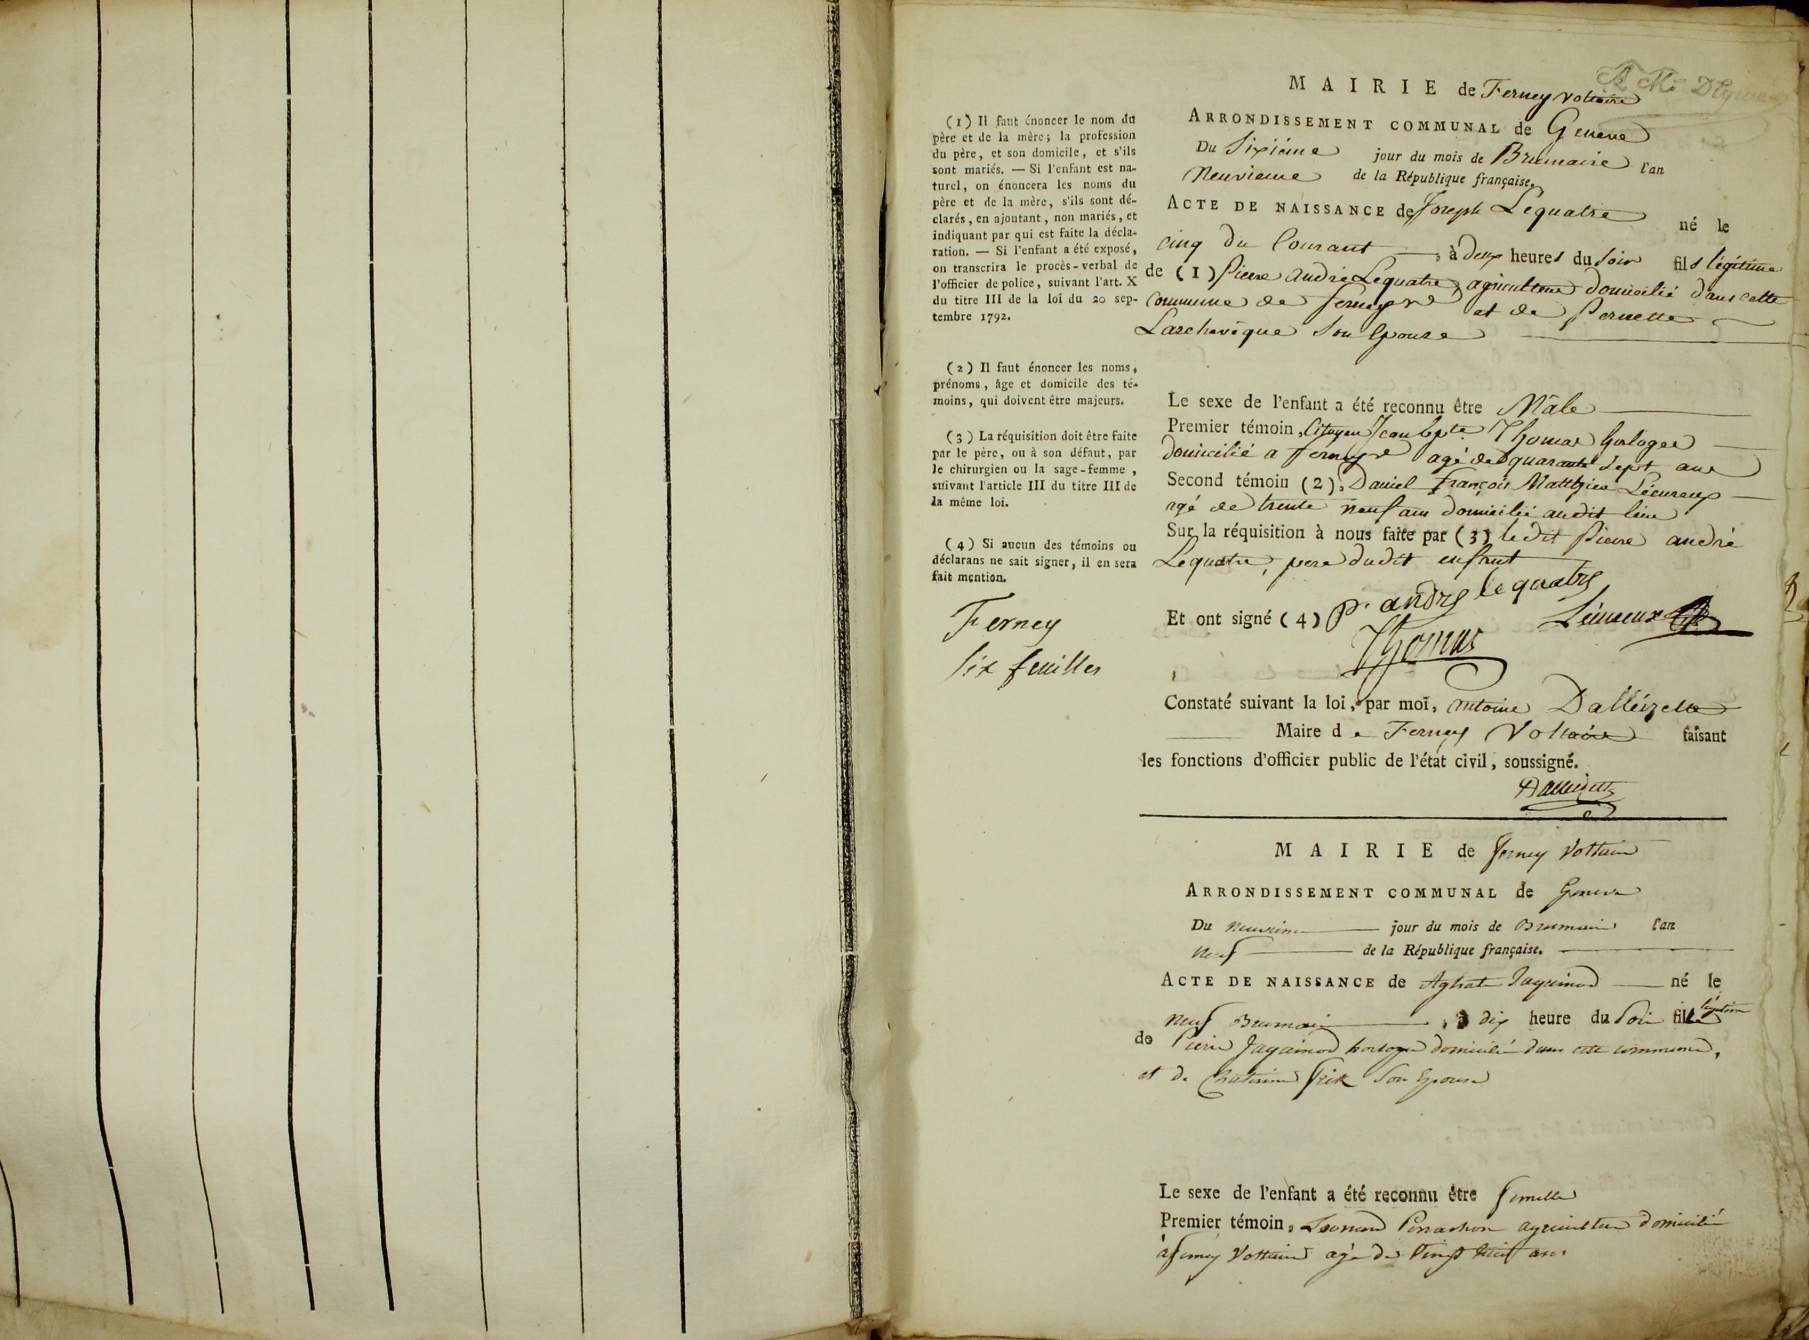 (1) Il faut énoncer le nom du
père et de la mère; la profession
du père, et son domicile, et s'ils
sont mariés. — Si l'enfant est na-
turel, on énoncera les noms du
père et de la mère, s'ils sont dé-
clarés, en ajoutant, non mariés, et
indiquant par qui est faite la décla-
ration. — Si l'enfant a été exposé,
on transcrira le procès-verbal de
l'officier de police, suivant l'art. X
du titre III de la loi du 20 sep-
tembre 1792.
(2) Il faut énoncer les noms,
prénoms, âge et domicile des té-
moins, qui doivent être majeurs.
(3) La réquisition doit être faite
par le père, ou à son défaut, par
le chirurgien ou la sage-femme,
suivant l'article III du titre III de
la même loi.
(4) Si aucun des témoins ou
déclarans ne sait signer, il en sera
fait mention.
Ferney
six feuilles
MAIRIE de Ferney Voltaire
ARRONDISSEMENT COMMUNAL de Geneve
Du Sixiéme jour du mois de Brumaire l'an
Neuvieme de la République française.
ACTE DE NAISSANCE de Joseph Lequatre né le
cinq du Courant, à deux heures du soir fils légitime
de (1) Pierre André Lequatre, agriculteur domicilié dans cette
Commune de Ferney V et de Pernette
Larchevêque son Epouse
Le sexe de l'enfant a été reconnu être Mâle
Premier témoin, Citoyen Jean Bpte Thomas horloger
domicilié a Ferney V agé de quarante sept ans
Second témoin (2), Daniel François Matthieu Lécureux
agé de trente neuf ans domicilié audit lieu
Sur la réquisition à nous faite par (3) ledit Pierre andré
Lequatre, pere dudit enfant
Et ont signé (4) P. andre lequatre
Thomas Lécureux
Constaté suivant la loi, par moi, Antoine Dalléizette
Maire de Ferney Voltaire faisant
les fonctions d'officier public de l'état civil, soussigné.
Dalleizette
MAIRIE de Ferney Voltaire
ARRONDISSEMENT COMMUNAL de Geneve
Du neuvieme jour du mois de Brumaire l'an
neuf de la République française.
ACTE DE NAISSANCE de Aghate Jaquinod né le
neuf Brumaire, à dix heure du soir fille légitime
de Pierre Jaquinod horloger domicilié dans cette commune,
et de Christine Frik son Epouse
Le sexe de l'enfant a été reconnu être femelle
Premier témoin, Perrachon agriculteur domicilié
à ferney Voltaire agé de Vingt huit ans